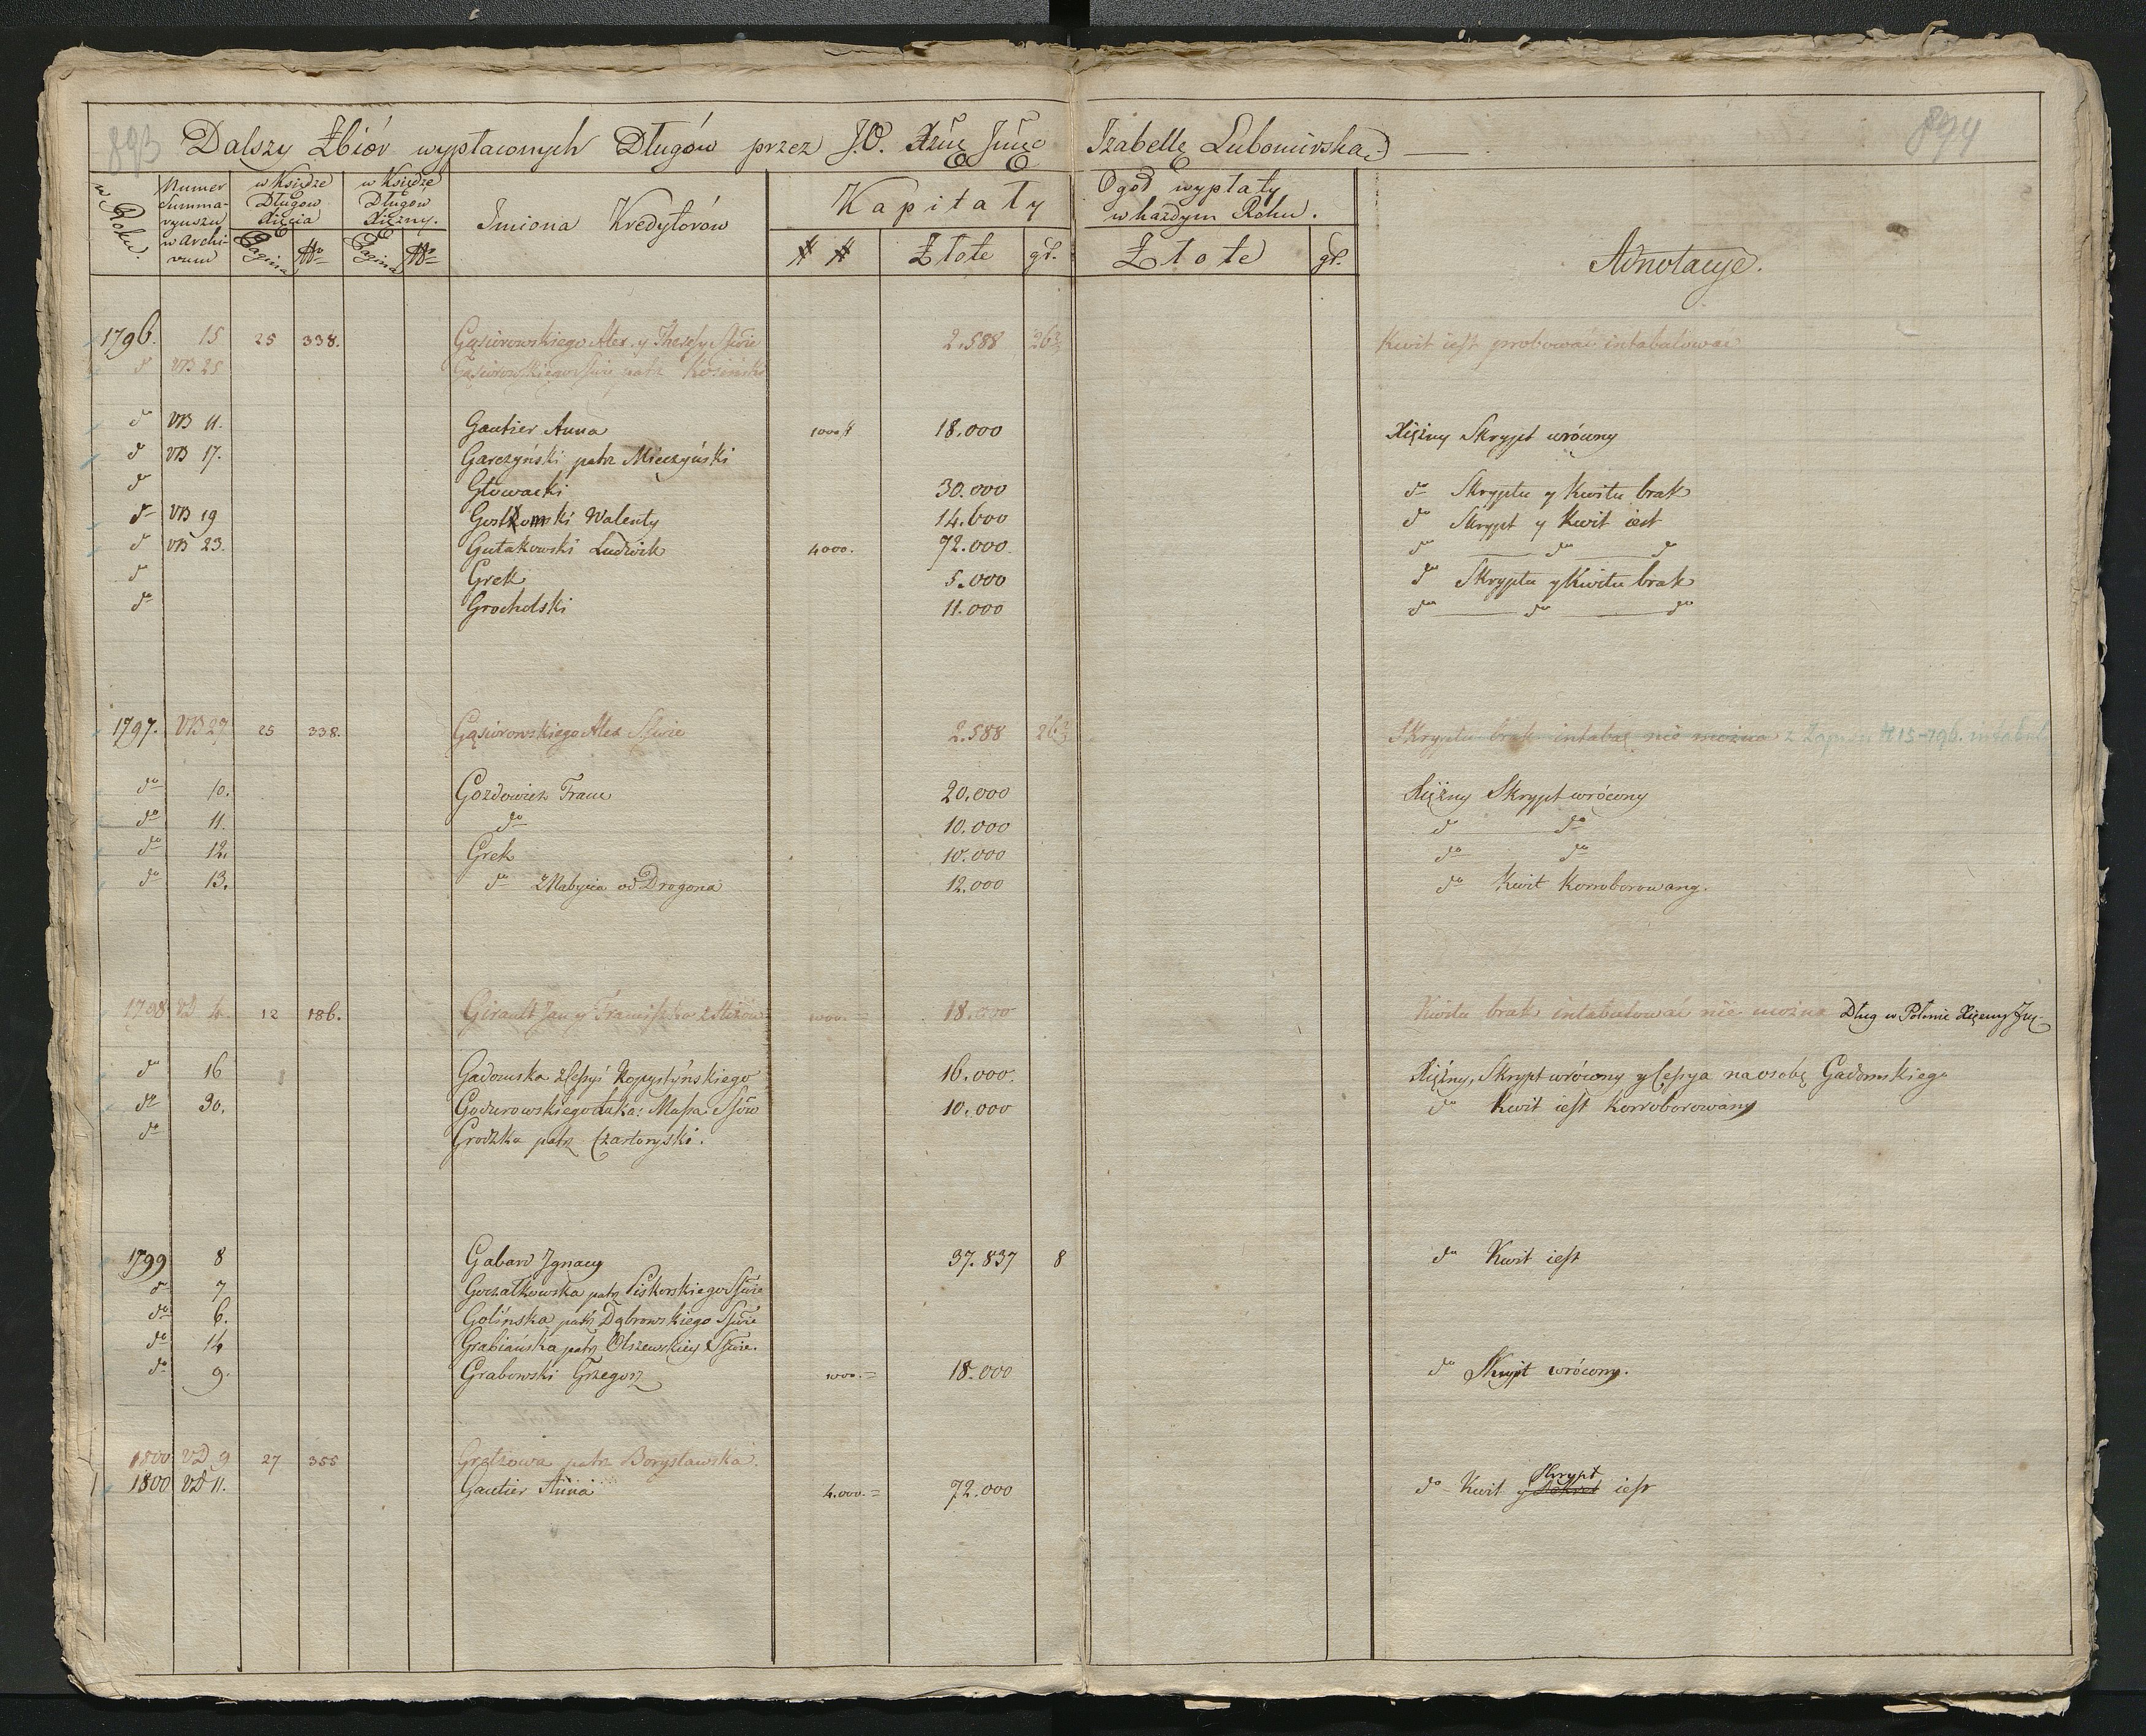 893
894
Dalszy Zbiór wypłaconych Długów przez J.O. Xżnę Jmę Izabellę Lubomirską
w Roku.
Numer Summaryuszu w Archivum
w Księdze Długów Xięcia
w Księdze Długów Xiężny.
Pagina No
Pagina No
Imiona Kredytorów
Kapitały
## Złote gr.
Ogoł wypłaty w każdym Roku.
Złote gr.
Adnotacye.
1796. 15 25 338. Gąsiorowskiego Alex. y Theresy Sswie 2.588 26 2/3 Kwit iest probować intabulować
do VB 25 Gąsiorowskiego Sswie patrz Kosiński
do VB 11. Gautier Anna 1000 # 18.000 Xiężny Skrypt wrócony
do VB 17. Garczyński patrz Mięczyński
do Głowacki 30.000 do Skryptu y Kwitu brak
do VB 19 Gostkowski Walenty 14.600 do Skrypt y Kwit iest
do VB 23. Gutakowski Ludwik 4000. 72.000. do do do
do Grek 5.000 do Skryptu y Kwitu brak
do Grocholski 11.000 do do do
1797. VB 27 25 338. Gąsiorowskiego Alex Sswie 2.588 26 2/3 Skryptu brak intabul nie można z Zapisu N 15-796. intabul
do 10. Gozdowicz Franc 20.000 Xiężny Skrypt wrócony
do 11. do 10.000 do do
do 12. Grek 10.000 do do
do 13. do z Nabycia od Drogona 12.000 do Kwit Korroborowany.
1798 VD 4. 12 186. Girault Jan y Franciszka z 1000.= 18.000 Kwitu brak intabulować nie można Dług w Połowie Xiężny Jmę
do 16 Gadomska z Cessyi Kopystyńskiego 16.000. Xiężny, Skrypt wrócony y Cessya na osobę Gadomskiego
do 30. Godurowskiego Łuka: Massa Ssów 10.000 do Kwit iest Korroborowany
do Grodzka patrz Czartoryski.
1799 8 Gabard Ignacy 37.837 8 do Kwit iest
do 7 Goczałkowska patrz Piskorskiego Sswie
do 6. Golińska patrz Dąbrowskiego Sswie
do 14 Grabiańska patrz Olszewskiey Sswie.
do 9. Grabowski Grzegorz 1000.= 18.000 do Skrypt wrócony.
1800 VD 9 27 355 Grętzowa patrz Borysławska.
1800 VD 11. Gautier Anna 4.000.= 72.000 do Kwit y Skrypt iest